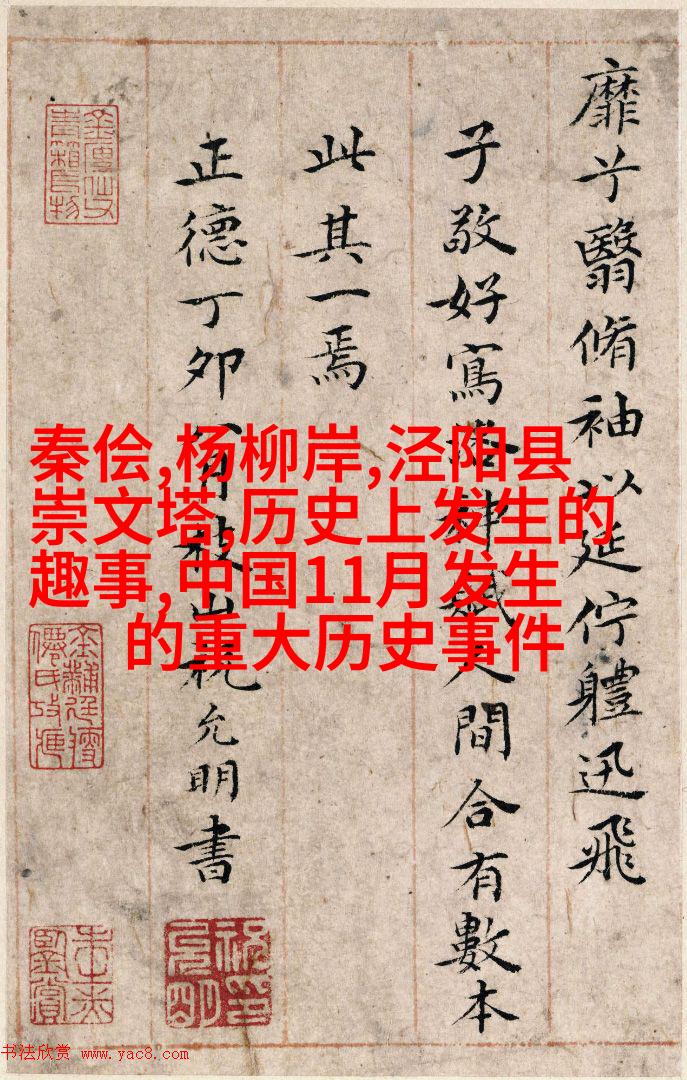 靡兮翳脩袖以延佇體迅飛
子敬好寫洛神賦人間合有數本
此其一焉
正德丁卯枝山祝允明書
秦侩,杨柳岸,泾阳县
崇文塔,历史上发生的
趣事,中国11月发生
的重大历史事件
书法欣赏 www.yac8.com